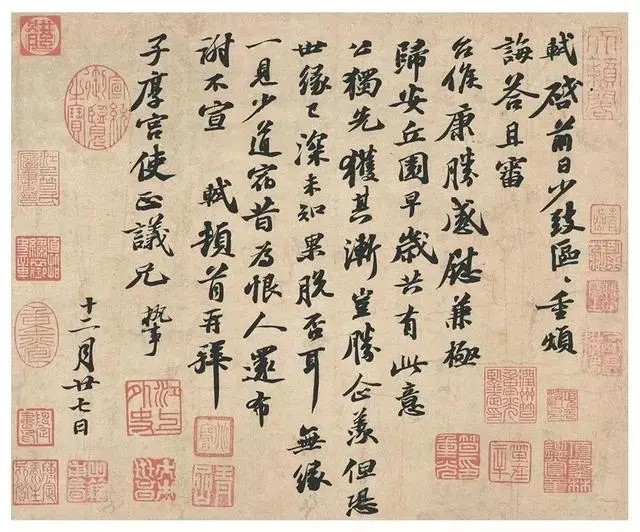 軾啓前日少致區〻重煩
誨答且審
台候康勝感慰兼極
歸安丘園早歲共有此意
公獨先獲其漸豈勝企羨但恐
世緣已深未知果脫否耳無緣
一見少道宿昔為恨人還布
謝不宣 軾頓首再拜
子厚宮使正議兄執事
十二月廿七日